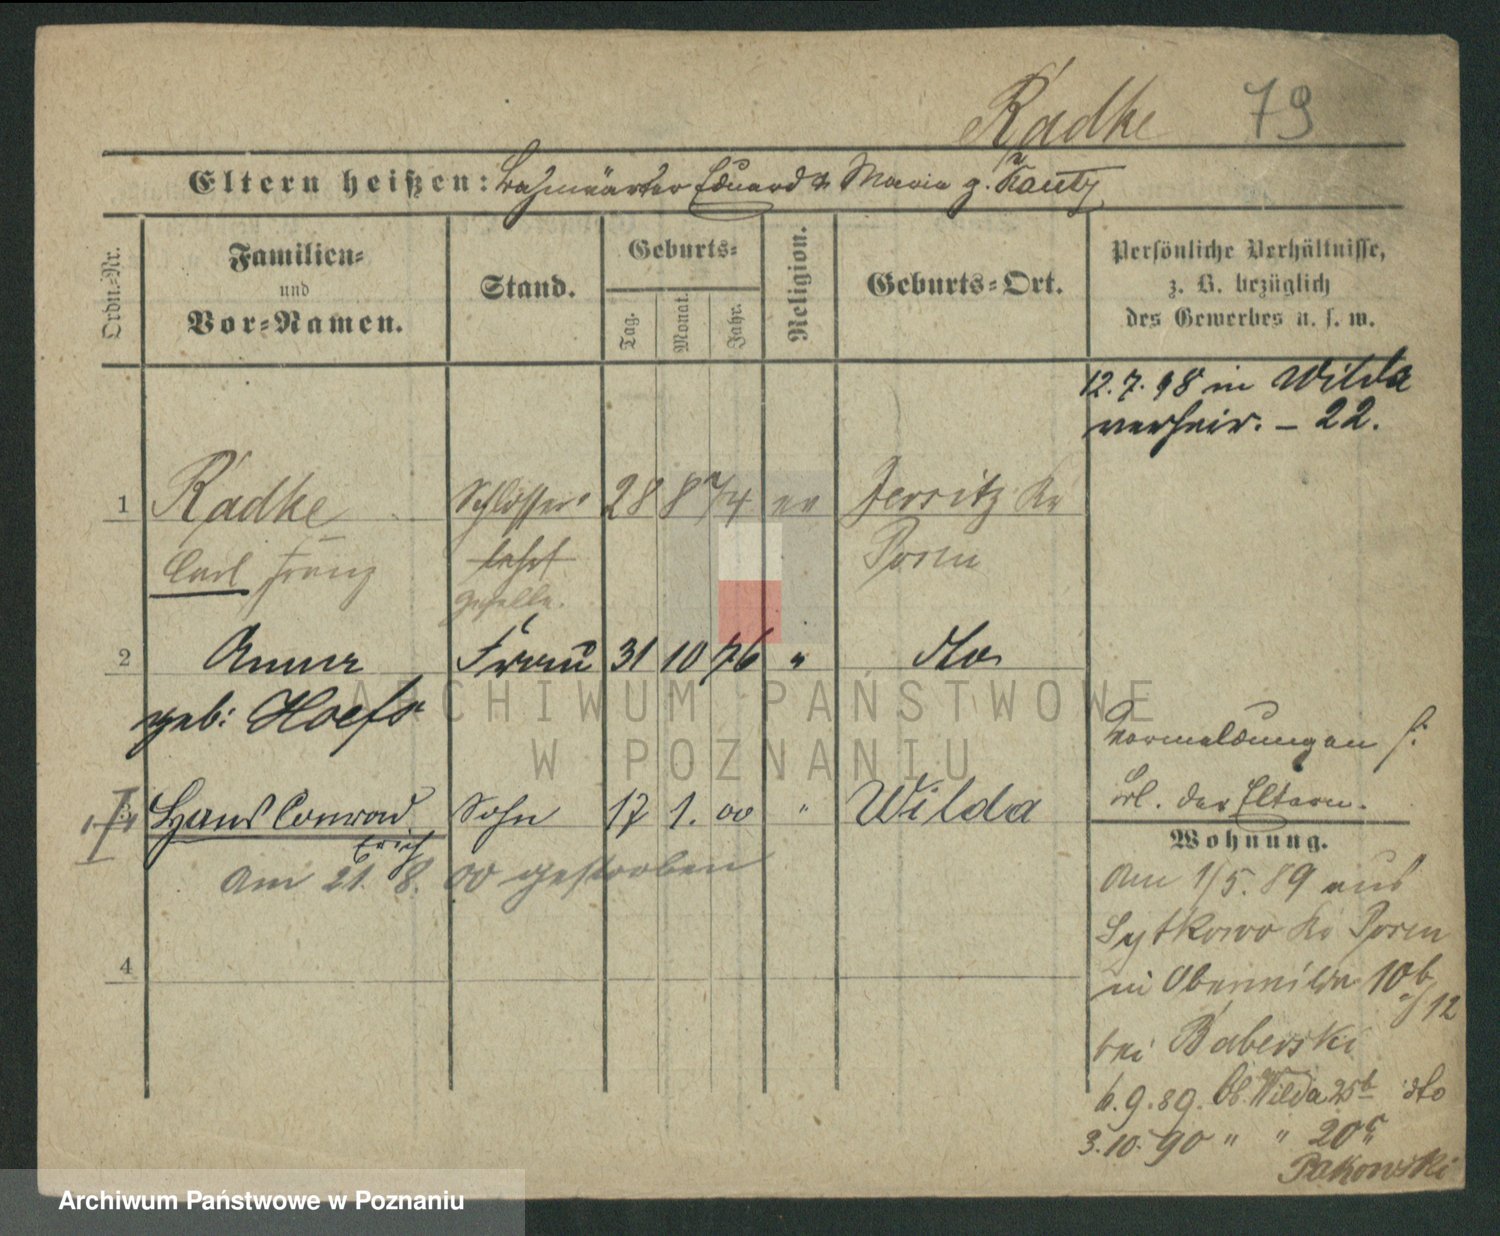 Radke 79
Eltern heißen: Bahnwärter Eduard u Maria g. Kautz
Ordn.-Nr.
Familien-
und
Vor-Namen.
Stand.
Geburts-
Tag.
Monat.
Jahr.
Religion.
Geburts-Ort.
Persönliche Verhältnisse,
z. B. bezüglich
des Gewerbes u. s. w.
12.7.98 in Wilda
verheir. – 22.
1 Radke Schlosser 28 8 74 ev Jersitz Kr
Carl Franz lehrl Posen
geselle.
2 Anna Frau 31 10 76 " dto
geb: Hoefs
Vormeldungen s.
3 Hans Conrad Sohn 17 1. 00 " Wilda
Erich
Bl. der Eltern.
am 21. 8. 00 gestorben
Wohnung.
Am 1/5. 89 aus
Sytkowo Kr Posen
in Oberwilda 10b
bei Baberski
4
6.9.89. Ob. Wilda 25b dto
3.10.90 " " 20c
Pakowski
ARCHIWUM PAŃSTWOWE
W POZNANIU
Archiwum Państwowe w Poznaniu